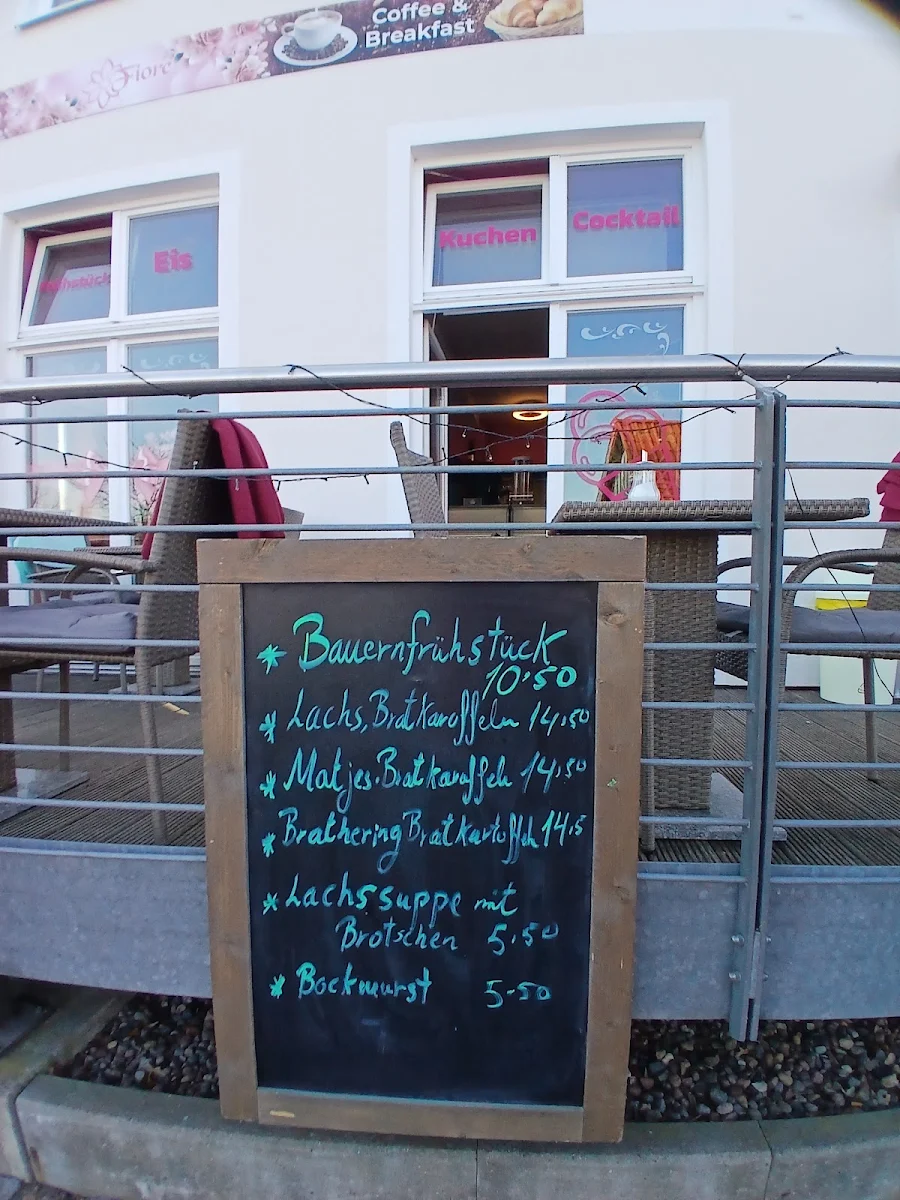 Coffee &
Breakfast
Fiore
Kuchen
Cocktail
Frühstück
Eis
* Bauernfrühstück
10,50
* Lachs, Bratkaroffeln 14,50
* Matjes-Bratkaroffeln 14,50
* Brathering Bratkartoffeln 14,5
* Lachssuppe mit
Brotschen 5,50
* Bockwurst 5-50